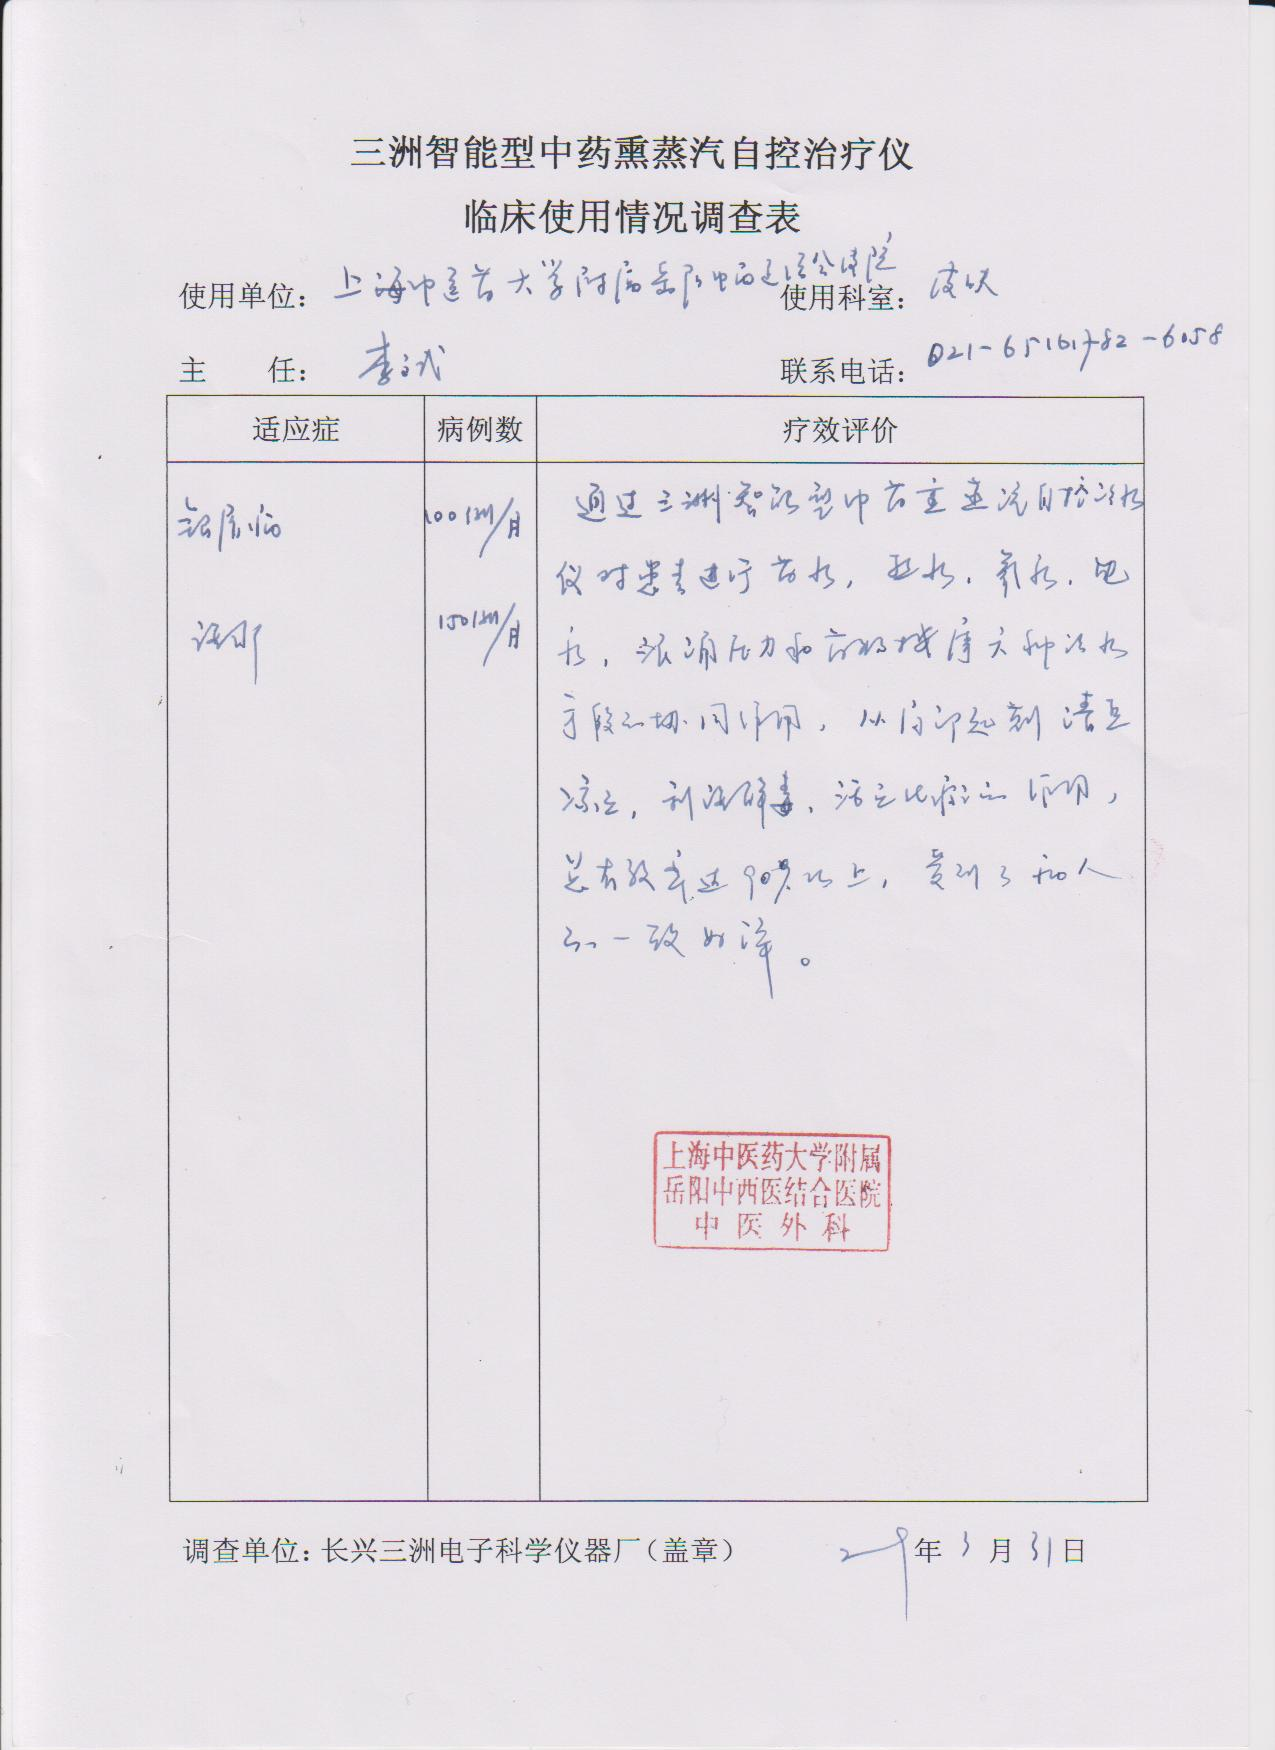 三洲智能型中药熏蒸汽自控治疗仪
临床使用情况调查表
使用单位： 上海中医药大学附属岳阳中西医结合医院 使用科室： 皮肤
主 任： 李斌 联系电话： 021-65161782-6058
适应症 病例数 疗效评价
银屑病 100例/月 通过三洲智能型中药熏蒸汽自控治疗
仪对患者进行药疗，热疗，氧疗，电
湿疹 150例/月 疗，浪涌压力和药物按摩六种治疗
手段的协同作用，从而即起到清热
凉血，利湿解毒，活血化瘀的作用，
总有效率达90%以上，受到了病人
的一致好评。
上海中医药大学附属
岳阳中西医结合医院
中医外科
调查单位：长兴三洲电子科学仪器厂（盖章） 年 3 月 31 日